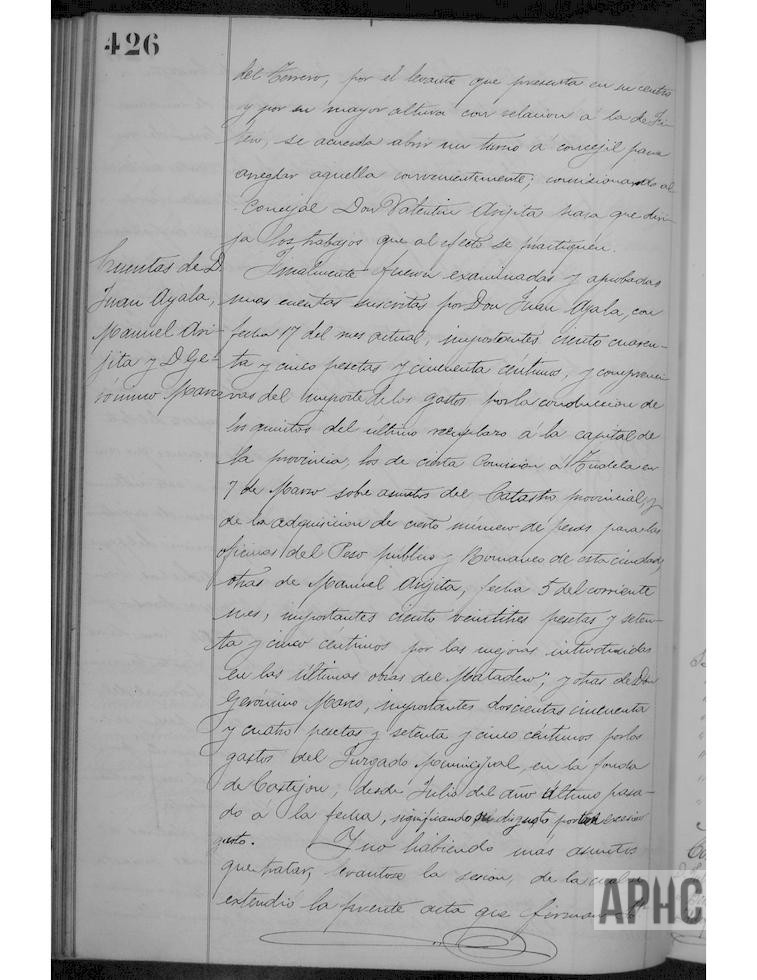 426
del Terrero, por el levante que presenta en su centro
y por su mayor altura con relacion á la de
se acuerda abrir un turno á concejil para
arreglar aquella convenientemente; comisionando al
Concejal Don Valentin Arijita para que diri-
ja los trabajos que al efecto se practiquen.
Cuentas de D.
Juan Ayala,
Manuel Ari-
jita y D. Ge-
rónimo Marco
Finalmente fueron examinadas y aprobadas
unas cuentas suscritas por Don Juan Ayala, con
fecha 17 del mes actual, importantes ciento cuaren-
ta y cinco pesetas y cincuenta céntimos, y comprensi-
vas del importe de los gastos por la conduccion de
los quintos del último reemplazo á la capital de
la provincia, los de cierta Comision á Tudela en
7 de Marzo sobre asuntos del Catastro provincial, y
de la adquisicion de cierto número de pesas para las
oficinas del Peso publico y Romaneo de esta ciudad;
otras de Manuel Arijita, fecha 5 del corriente
mes, importantes ciento veintitres pesetas y seten-
ta y cinco céntimos por las mejoras introducidas
en las últimas obras del Matadero; y otras de Don
Gerónimo Marco, importantes doscientas cincuenta
y cuatro pesetas y setenta y cinco céntimos por los
gastos del Juzgado Municipal, en la fonda
de Castejon, desde Julio del año último pasa-
do á la fecha, significando su disgusto por tan excesivo
gasto. Y no habiendo mas asuntos
que tratar, levantose la sesion, de la cual se
extendió la presente acta que firman
APHC